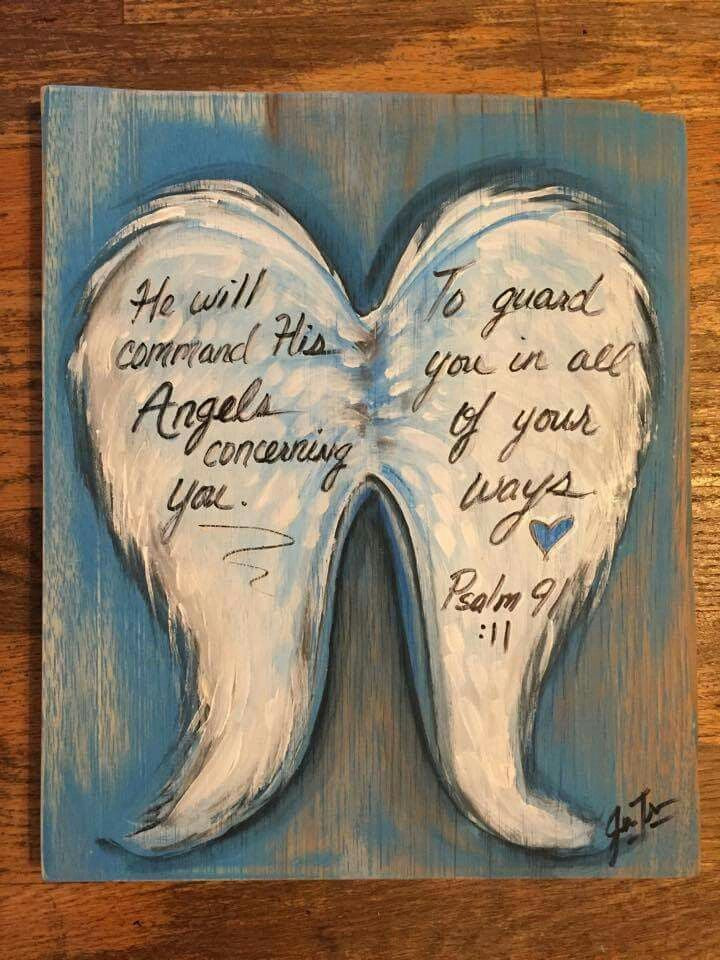 He will
command His
Angels
concerning
you.
To guard
you in all
of your
ways
Psalm 91
:11